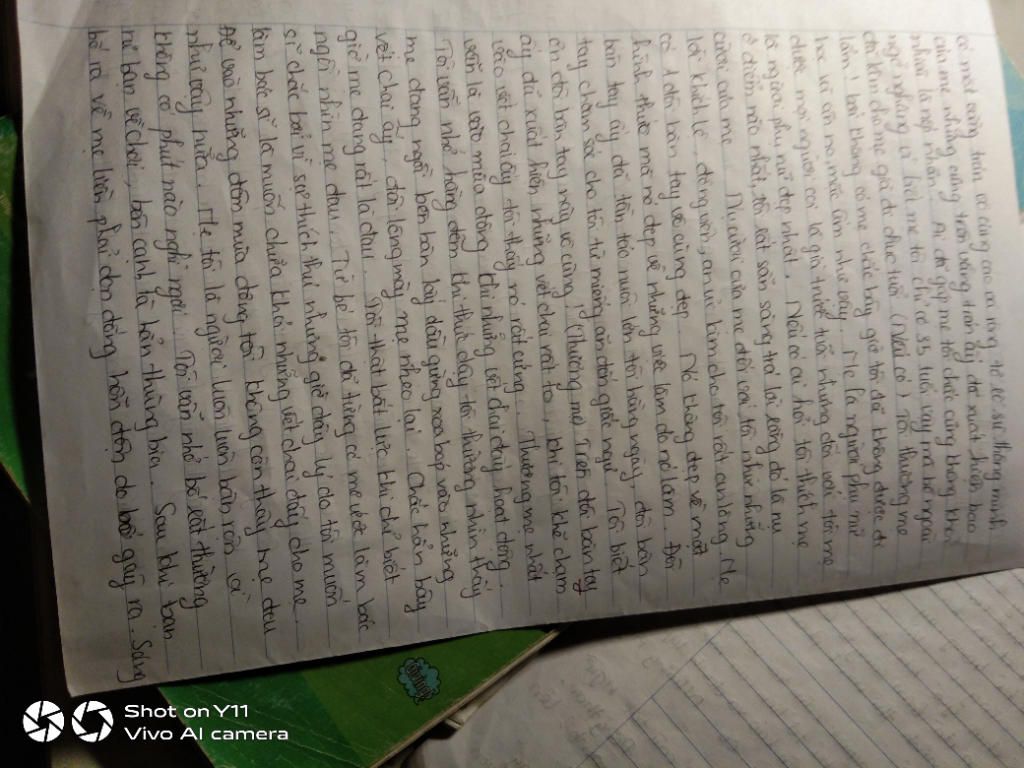 có một vầng trán vô cùng cao và rộng, sự thông minh
của mẹ nhưng cũng trên vầng trán ấy đã xuất hiện bao
nhiêu là nếp nhăn. Ai đó gặp mẹ tôi chắc cũng không khỏi
ngỡ ngàng mẹ tôi chỉ có 35 tuổi vậy mà bề ngoài
đã khiến cho mẹ già đi chục tuổi. (Nếu có) Tôi thương mẹ
lắm! bởi không có mẹ chắc bây giờ tôi đã không được đi
học và no, mặc ấm như vậy. Mẹ là người phụ nữ
được mọi người coi là già trước tuổi nhưng đối với tôi mẹ
là người phụ nữ đẹp nhất. Nếu có ai hỏi tôi thích mẹ
ở điểm nào nhất, tôi rất sẵn sàng trả lời rằng đó là nụ
cười của mẹ. Nụ cười của mẹ đối với tôi như những
lời khích lệ, động viên, an ủi làm cho tôi rất an lòng. Mẹ
có 1 đôi bàn tay vô cùng đẹp. Nó không đẹp về mặt
hình thức mà nó đẹp về những việc làm do nó làm. Đôi
bàn tay ấy đã tần tảo nuôi lớn tôi hằng ngày, đôi bàn
tay chăm sóc cho tôi từ miếng ăn đến giấc ngủ. Tôi biết
ơn đôi bàn tay này vô cùng! (Thương mẹ) Trên đôi bàn tay
ấy đã xuất hiện những vết chai rất to, khi tôi khẽ chạm
vào vết chai ấy tôi thấy nó rất cứng. Thương mẹ nhất
vẫn là vào mùa đông khi những vết chai đấy hoạt động.
Tôi vẫn nhớ hằng đêm khi thức dậy tôi thường nhìn thấy
mẹ đang ngồi bên bàn lấy dầu gừng xoa bóp vào những
vết chai ấy, đôi lông mày mẹ nheo lại. Chắc hẳn bây
giờ mẹ đang rất là đau. Tôi thật bất lực khi chỉ biết
ngồi nhìn mẹ đau. Từ bé tôi đã từng có mơ ước làm bác
sĩ chắc bởi vì sở thích thú nhưng giờ đây lý do tôi muốn
làm bác sĩ là muốn chữa khỏi những vết chai đấy cho mẹ.
Để vào những đêm mùa đông tôi không còn thấy mẹ đau
như vậy nữa. Mẹ tôi là người luôn luôn bận rộn
không có phút nào nghỉ ngơi. Tôi vẫn nhớ bố rất thường
rủ bạn về chơi, bên cạnh là hẳn thùng bia. Sau khi bạn
bố ra về mẹ liền phải dọn đống hỗn độn do bố gây ra. Sang
Shot on Y11
Vivo AI camera